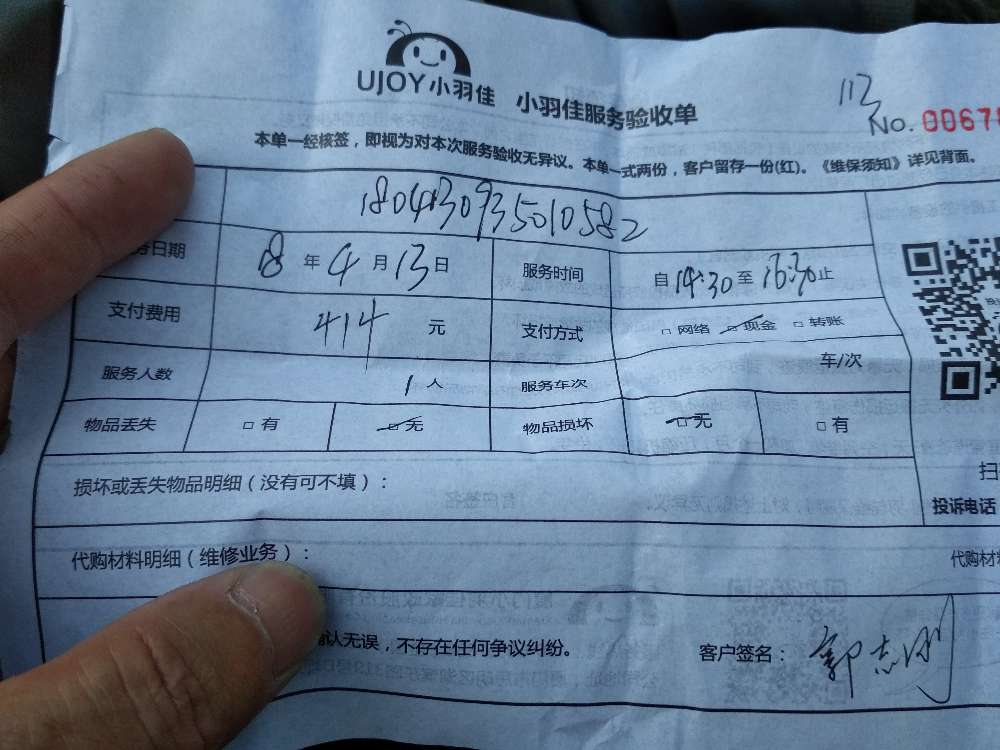 UJOY小羽佳 小羽佳服务验收单
113
No. 0067
本单一经核签，即视为对本次服务验收无异议。本单一式两份，客户留存一份(红)。《维保须知》详见背面。
1804130935010582
务日期 18 年 4 月 13 日 服务时间 自 14:30 至 16:30 止
支付费用 414 元 支付方式 □ 网络 □ 现金 □ 转账
服务人数 1 人 服务车次 车/次
物品丢失 □ 有 □ 无 物品损坏 □ 无 □ 有
损坏或丢失物品明细（没有可不填）：
扫
投诉电话
代购材料明细（维修业务）：
代购材
确认无误，不存在任何争议纠纷。 客户签名： 郭志刚